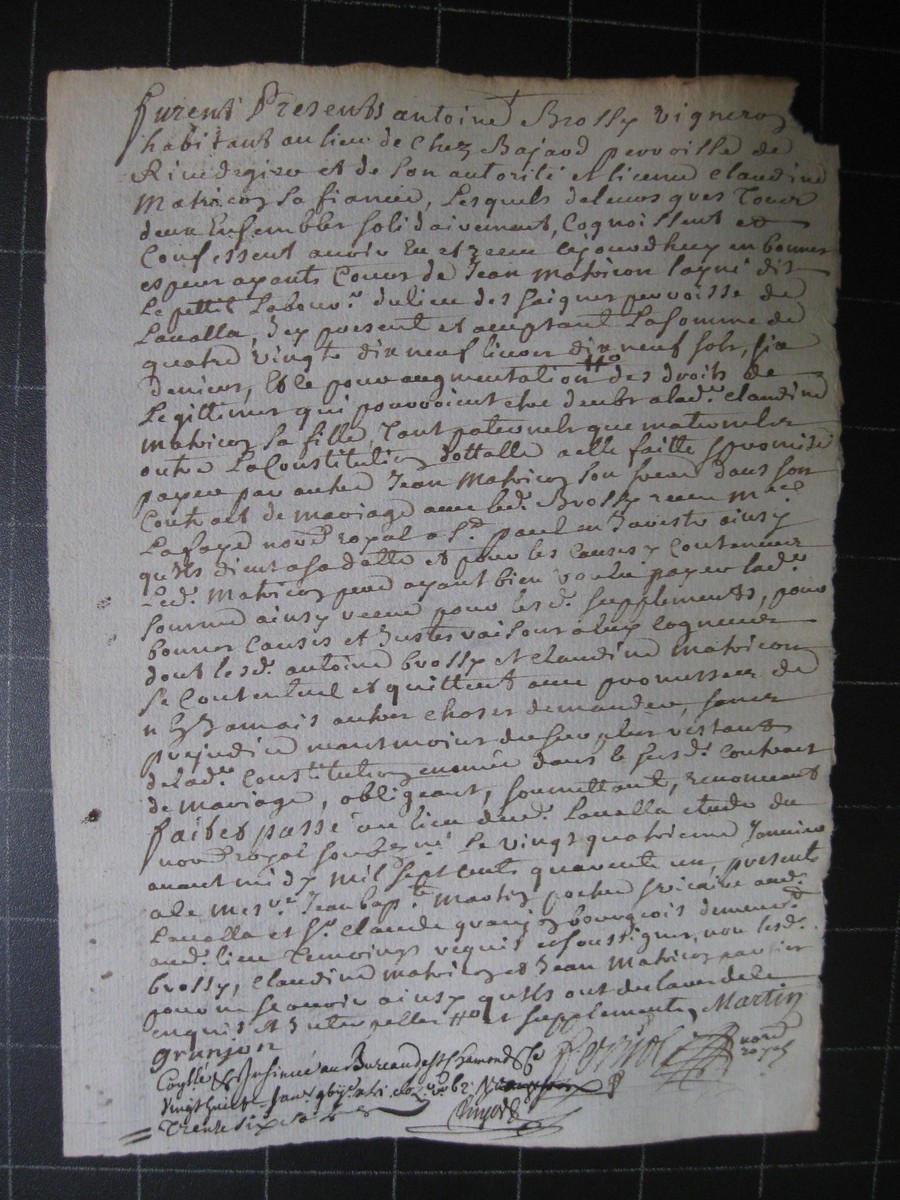 furent Presents antoine Brossy vigneron
habitant au lieu de Chez Bajard parroisse de
Rivedegier et de son autorité et licence Claudine
Matricon sa fiancée, Lesquels de leurs gres Tous
deux Ensembles solidairement, Cognoissent et
Confessent avoir Eu et receu cejourdhuy en bonnes
especes ayants Cours de Jean Matricon layné dit
Le pettit Labour.r du lieu des saignes parroisse de
Lavalla, Icy present et acceptant La somme de
quatre vingts dix neuf livres dix neuf sols, six
deniers, Et ce pour augmentation #o des droits de
Legittimes qui pouvoient etre deubs a lad.e Claudine
Matricon sa fille, Tant paternels que maternels
outre La Constitution dottalle a elle faitte et promise
payer par autre Jean Matricon son frere dans son
Contract de mariage avec led. Brossy receu m.e
Lafaye no.re royal a S.t paul en Jarests ainsy
qu'ils dient a sa datte et pour les causes y Contenues
Led. Matricon pere ayant bien voulu payer lad.e
somme ainsy receue pour lesd. supplements, pour
bonnes Causes et Justes raisons a luy Cogneues
dont lesd. antoine brossy et Claudine Matricon
se Contentent et quittent avec promesses de
n'en Jamais autres choses demander, sans
prejudice neantmoins du surplus restant
de lad.e Constitution enoncée dans le susd. Contract
de mariage, obligeant, soumettant, renonceant
fait et passé au lieu dud. Lavalla etude du
no.re royal soubs.né Le vingt quatrieme Janvier
avant midy mil sept cents quarente un, presents
a ce mes.re Jean bap.te Martin pretre vicaire aud.
Lavalla et S.r Claude granjon bourgeois demeur.t
aud. lieu Temoings requis et soussignes, non lesd.
brossy, Claudine Matricon et Jean Matricon parties
pour ne scavoir ainsy qu'ils ont declaré de ce
enquis et Interpellés #o et supplements, Martin
granjon
no.re
royal
Con.lé et Insinué au Bureau de St Chamond le
vingt huit Janv.
Trente six sols